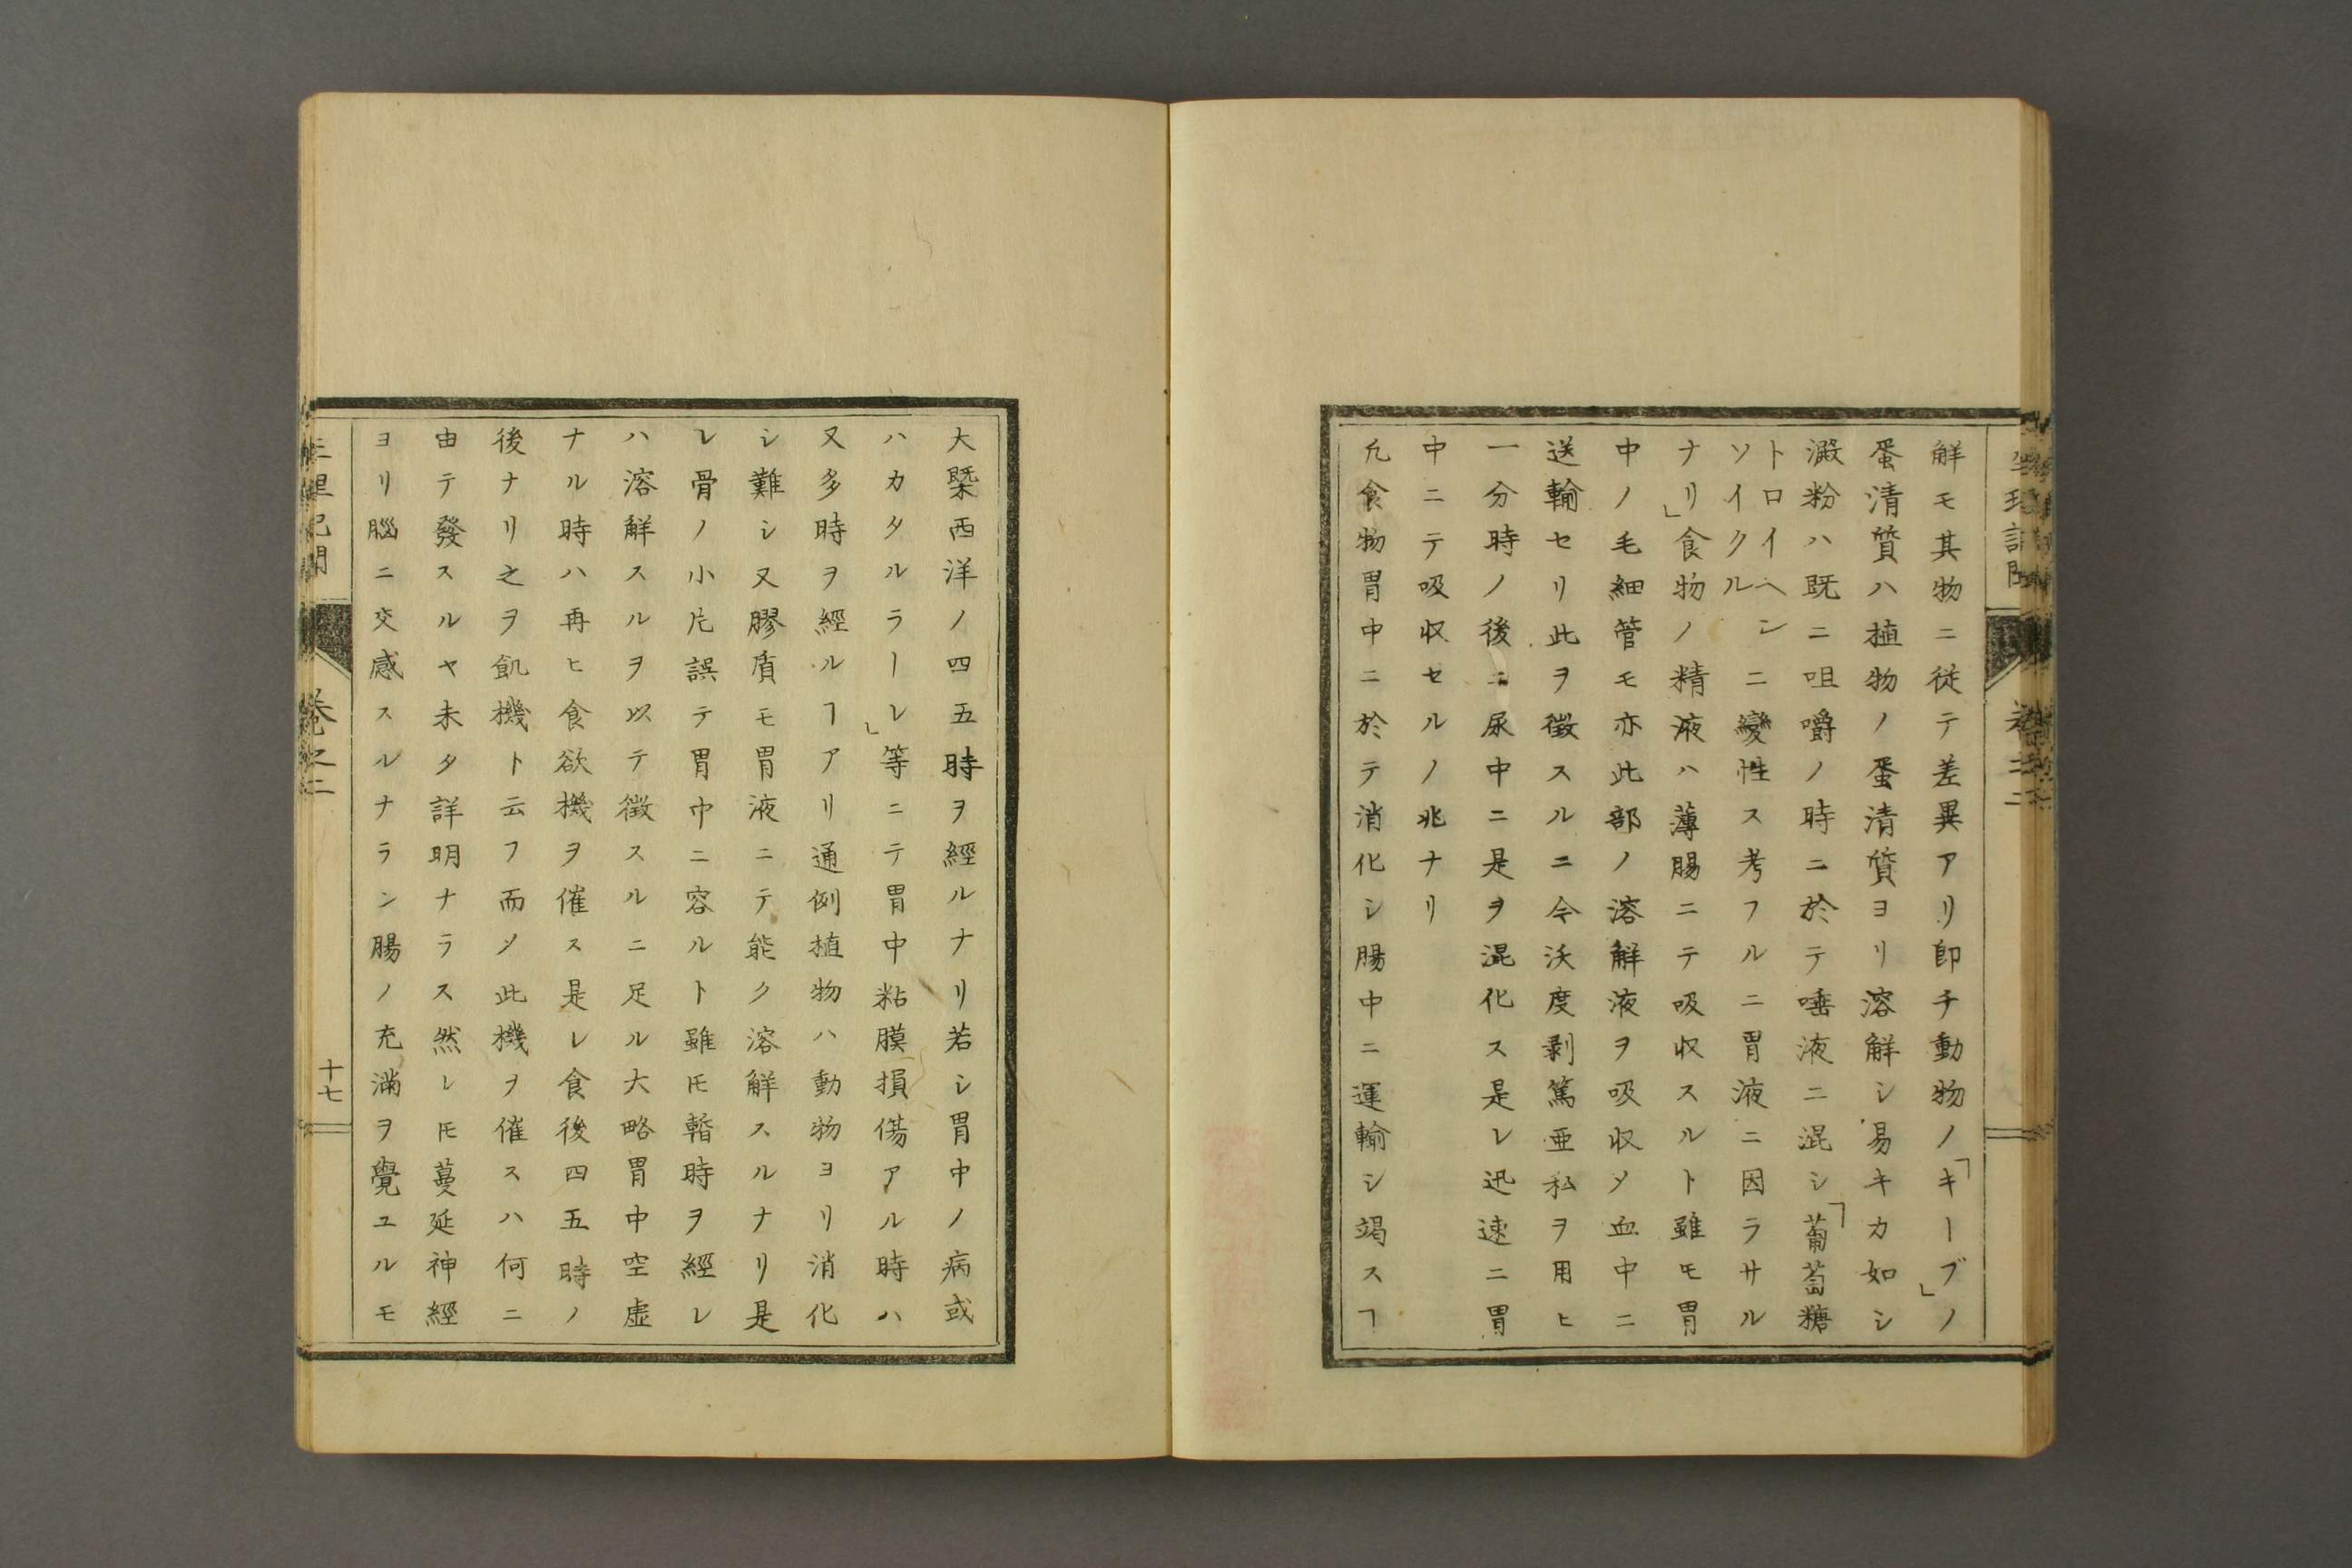 解モ其物ニ従テ差異アリ即チ動物ノ「キーブ」ノ
蛋清質ハ植物ノ蛋清質ヨリ溶解シ易キカ如シ
澱粉ハ既ニ咀嚼ノ時ニ於テ唾液ニ混シ「葡萄糖
トロイヘン
ソイクル
ニ變性ス考フルニ胃液ニ因ラサル
ナリ」食物ノ精液ハ薄腸ニテ吸収スルト雖モ胃
中ノ毛細管モ亦此部ノ溶解液ヲ吸収メ血中ニ
送輸セリ此ヲ徴スルニ今沃度剥篤亜私ヲ用ヒ
一分時ノ後ニ尿中ニ是ヲ混化ス是レ迅速ニ胃
中ニテ吸収セルノ兆ナリ
凢食物胃中ニ於テ消化シ腸中ニ運輸シ竭スヿ
大槩西洋ノ四五時ヲ經ルナリ若シ胃中ノ病或
ハカタルラーレ」等ニテ胃中粘膜損傷アル時ハ
又多時ヲ經ルヿアリ通例植物ハ動物ヨリ消化
シ難シ又膠質モ胃液ニテ能ク溶解スルナリ是
レ骨ノ小片誤テ胃中ニ容ルト雖𪜈暫時ヲ經レ
ハ溶解スルヲ以テ徴スルニ足ル大略胃中空虚
ナル時ハ再ヒ食欲機ヲ催ス是レ食後四五時ノ
後ナリ之ヲ飢機ト云フ而メ此機ヲ催スハ何ニ
由テ發スルヤ未タ詳明ナラス然レ𪜈蔓延神經
ヨリ腦ニ交感スルナラン腸ノ充滿ヲ覺ユルモ
卷之二
十七